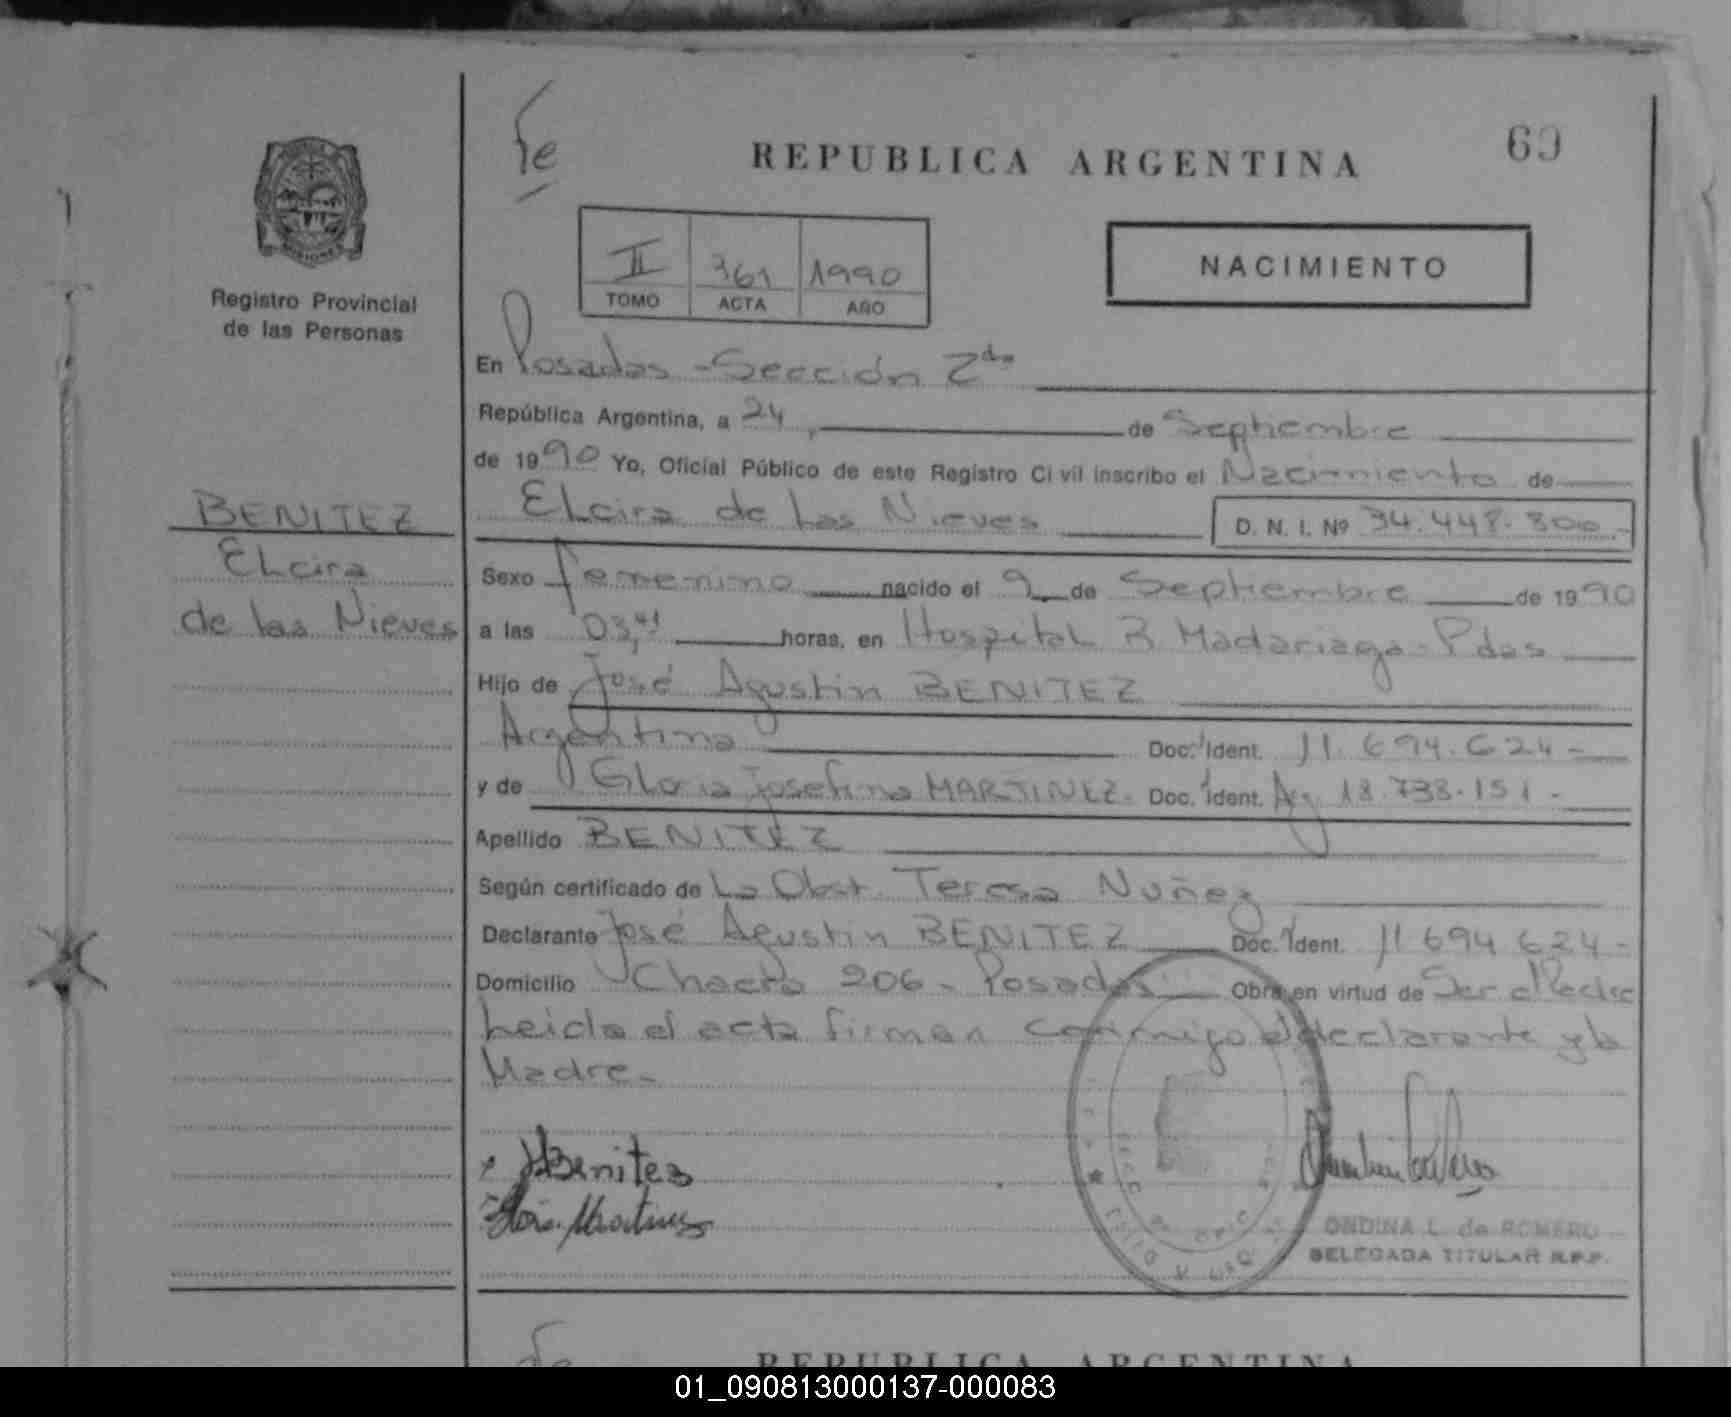 fe
REPUBLICA ARGENTINA
69
II 361 1990
TOMO ACTA AÑO
NACIMIENTO
MISIONES
Registro Provincial
de las Personas
En Posadas - Sección 2da
República Argentina, a 24 de Septiembre
de 1990 Yo, Oficial Público de este Registro Civil inscribo el Nacimiento de
BENITEZ
Elcira
de las Nieves
Elcira de las Nieves D. N. I. Nº 34.448.800.-
Sexo femenino nacido el 9 de Septiembre de 1990
a las 03,41 horas, en Hospital R. Madariaga - Pdas
Hijo de José Agustin BENITEZ
Argentina Doc. Ident. 11.694.624-
y de Gloria Josefina MARTINEZ. Doc. Ident. Arg 18.738.151-
Apellido BENITEZ
Según certificado de La Obst. Teresa Nuñez
Declarante José Agustin BENITEZ Doc. Ident. 11.694.624-
Domicilio Chacra 206 - Posadas Obra en virtud de Ser el Padre
Leida el acta firman conmigo el declarante y la
Madre.-
x JABenitez
Gloria Martinez
ONDINA L. de ROMERO
DELEGADA TITULAR R.P.P.
fe
REPUBLICA ARGENTINA
01_090813000137-000083